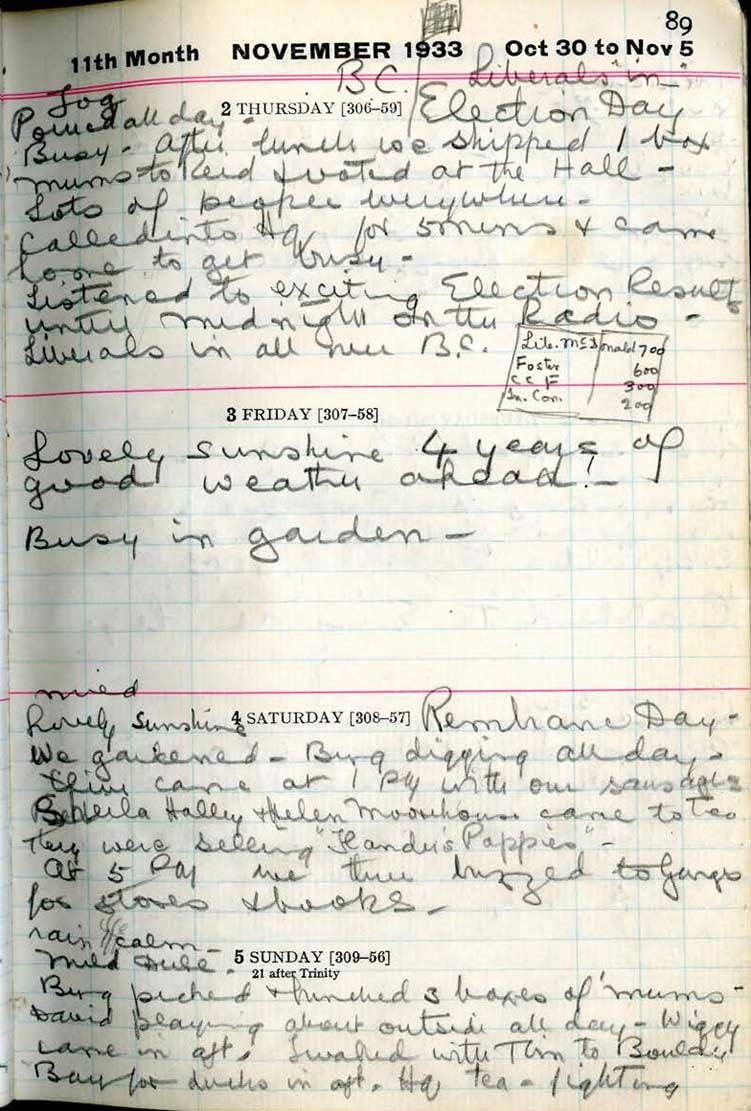 89
11th Month NOVEMBER 1933 Oct 30 to Nov 5
B.C. Liberals "in"
Fog
2 THURSDAY [306–59] Election Day
Poured all day -
Busy - After lunch we shipped 1 box
mums to Reid & voted at the Hall -
Lots of people everywhere -
Called into Hq for 5 mins & came
home to get busy -
Listened to exciting Election Results
until midnight on the Radio -
Liberals in all over B.C.
Lib. McDonald 700
Foster 600
C C F 300
In. Con. 200
3 FRIDAY [307–58]
Lovely sunshine 4 years of
good weather ahead! -
Busy in garden -
mild
Lovely Sunshine 4 SATURDAY [308–57] Day -
We gardened - Berg digging all day -
came at 1 PM with our sausages
Sheila Halley & Helen Moorehouse came to Tea
They were selling "Poppies" -
At 5 PM we three buzzed to Ganges
for stores & books -
rain calm -
Mild dull - 5 SUNDAY [309–56]
21 after Trinity
Berg picked & bunched 3 boxes of 'mums -
David playing about outside all day - Wiggy
came in aft. I walked with to
Bay for ducks in aft. Hq tea - fighting